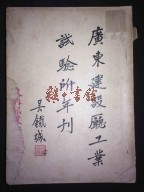 廣東建設廳工業
試驗所年刊
吳鐵城